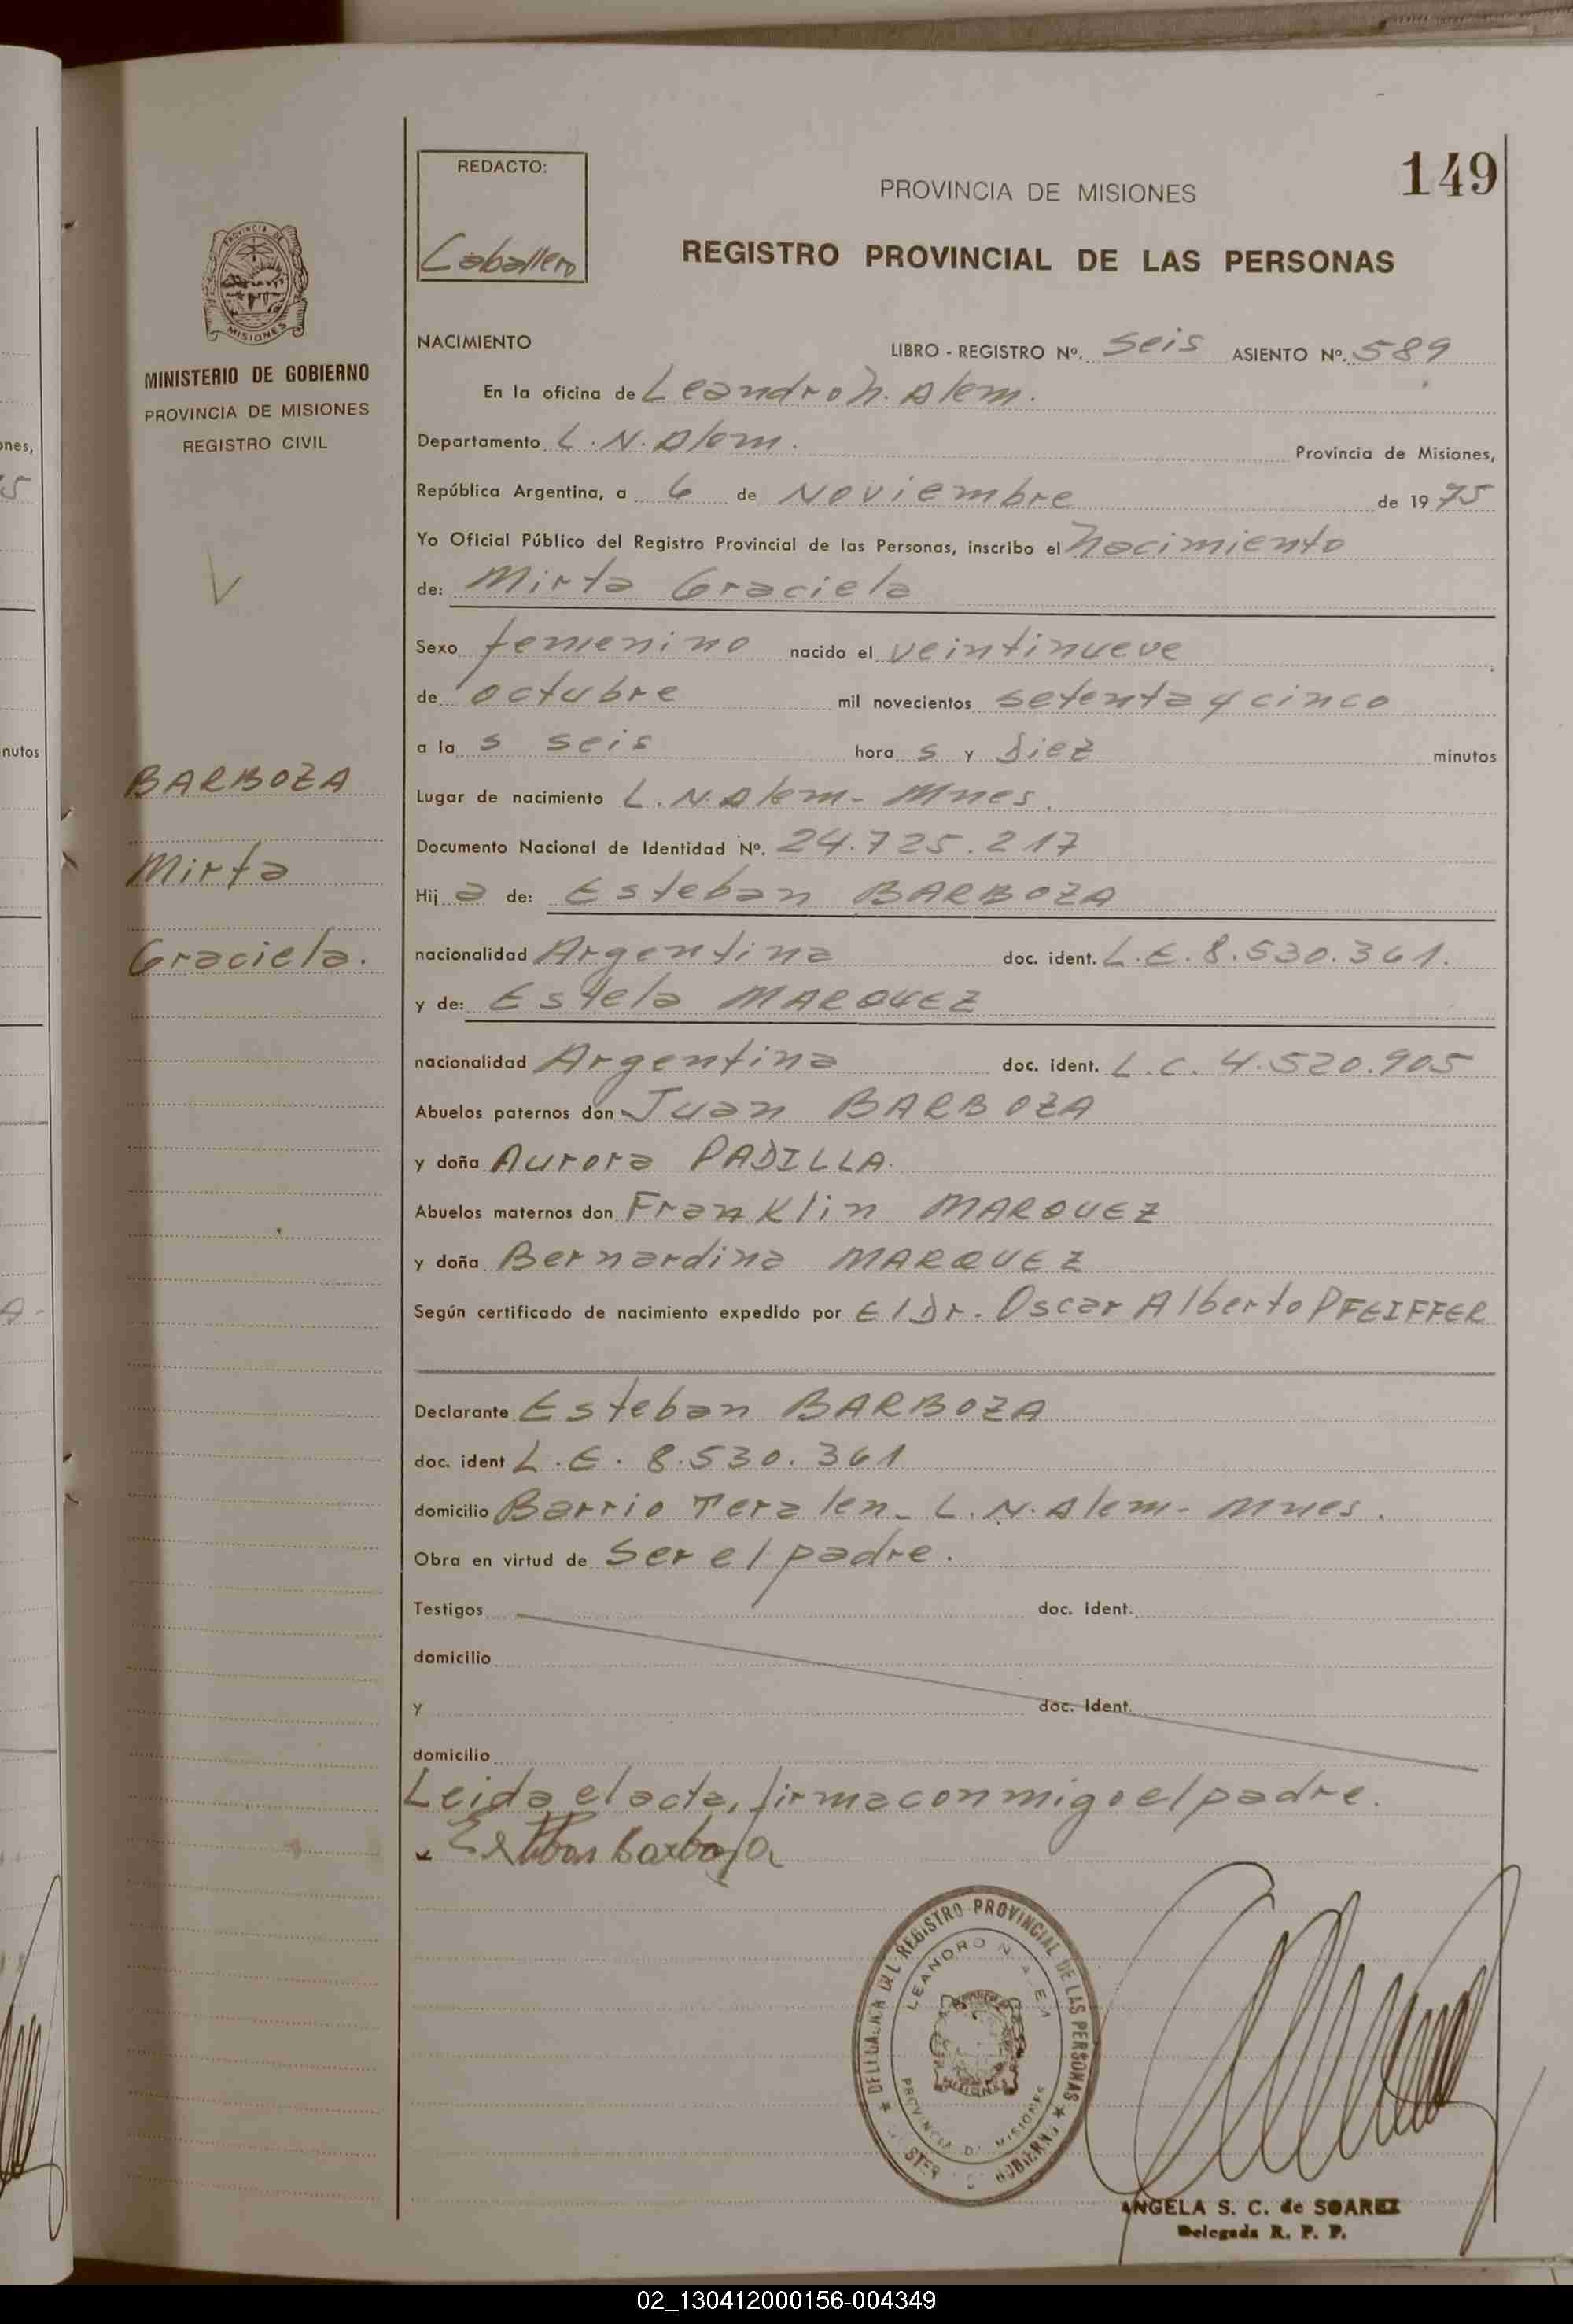 149
REDACTO:
Caballero
PROVINCIA DE MISIONES
REGISTRO PROVINCIAL DE LAS PERSONAS
PROVINCIA DE
MISIONES
MINISTERIO DE GOBIERNO
PROVINCIA DE MISIONES
REGISTRO CIVIL
BARBOZA
Mirta
Graciela.
NACIMIENTO LIBRO - REGISTRO Nº. Seis ASIENTO Nº. 589
En la oficina de Leandro N. Alem.
Departamento L. N. Alem. Provincia de Misiones,
República Argentina, a 6 de Noviembre de 1975
Yo Oficial Público del Registro Provincial de las Personas, inscribo el Nacimiento
de: Mirta Graciela
Sexo femenino nacido el veintinueve
de octubre mil novecientos setenta y cinco
a la s seis hora s y diez minutos
Lugar de nacimiento L. N. Alem - Mnes.
Documento Nacional de Identidad Nº. 24.725.217
Hij a de: Esteban BARBOZA
nacionalidad Argentina doc. ident. L.E. 8.530.361.
y de: Estela MARQUEZ
nacionalidad Argentina doc. ident. L.C. 4.520.905
Abuelos paternos don Juan BARBOZA
y doña Aurora PADILLA.
Abuelos maternos don Franklin MARQUEZ
y doña Bernardina MARQUEZ
Según certificado de nacimiento expedido por El Dr. Oscar Alberto PFEIFFER
Declarante Esteban BARBOZA
doc. ident L.E. 8.530.361
domicilio Barrio L. N. Alem - Mnes.
Obra en virtud de Ser el padre.
Testigos doc. ident.
domicilio
y doc. ident.
domicilio
Leida el acta, firma conmigo el padre.
Esteban Barboza
DELEGACION DEL REGISTRO PROVINCIAL DE LAS PERSONAS
LEANDRO N. ALEM
PROVINCIA DE MISIONES
ANGELA S. C. de SOAREZ
Delegada R. P. P.
02_130412000156-004349